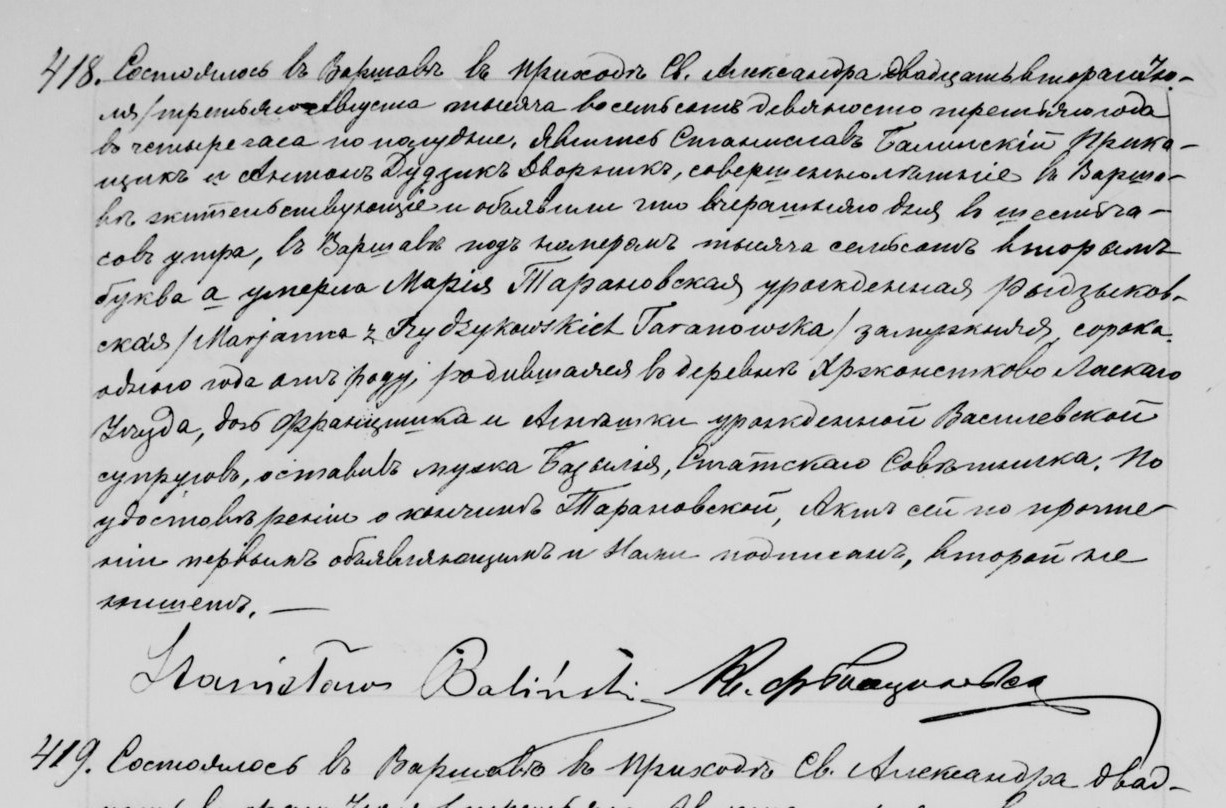 418. Состоялось въ Варшавѣ въ приходѣ Св. Александра двадцать втораго Ію-
ля/третьяго Августа тысяча восемьсотъ девяносто третьяго года
въ четыре часа по полудне. Явились Станиславъ Балинскій Прика-
щикъ и Антонъ Дудзикъ Дворникъ, совершеннолѣтніе въ Варша-
вѣ жительствующіе и объявили что вчерашняго дня въ шесть ча-
совъ утра, въ Варшавѣ подъ номеромъ тысяча семьсотъ вторымъ
буква а умерла Марія Тарановская урожденная Рыдзыков-
ская/Marjanna z Rydzykowskich Taranowska/замужняя, сорока
одного года отъ роду, родившаяся въ деревнѣ Ласкаго
Уѣзда, дочь Францишка и Агнѣшки урожденной Василевской
супруговъ, оставивъ мужа Базылія, Статскаго Совѣтника. По
удостовѣреніи о кончинѣ Тарановской, Актъ сей по прочте-
ніи первымъ объявляющимъ и Нами подписанъ, второй не
пишетъ. —
Stanisław Baliński Кс.
419. Состоялось въ Варшавѣ въ приходѣ Св. Александра двад-
цать втораго Іюля/третьяго